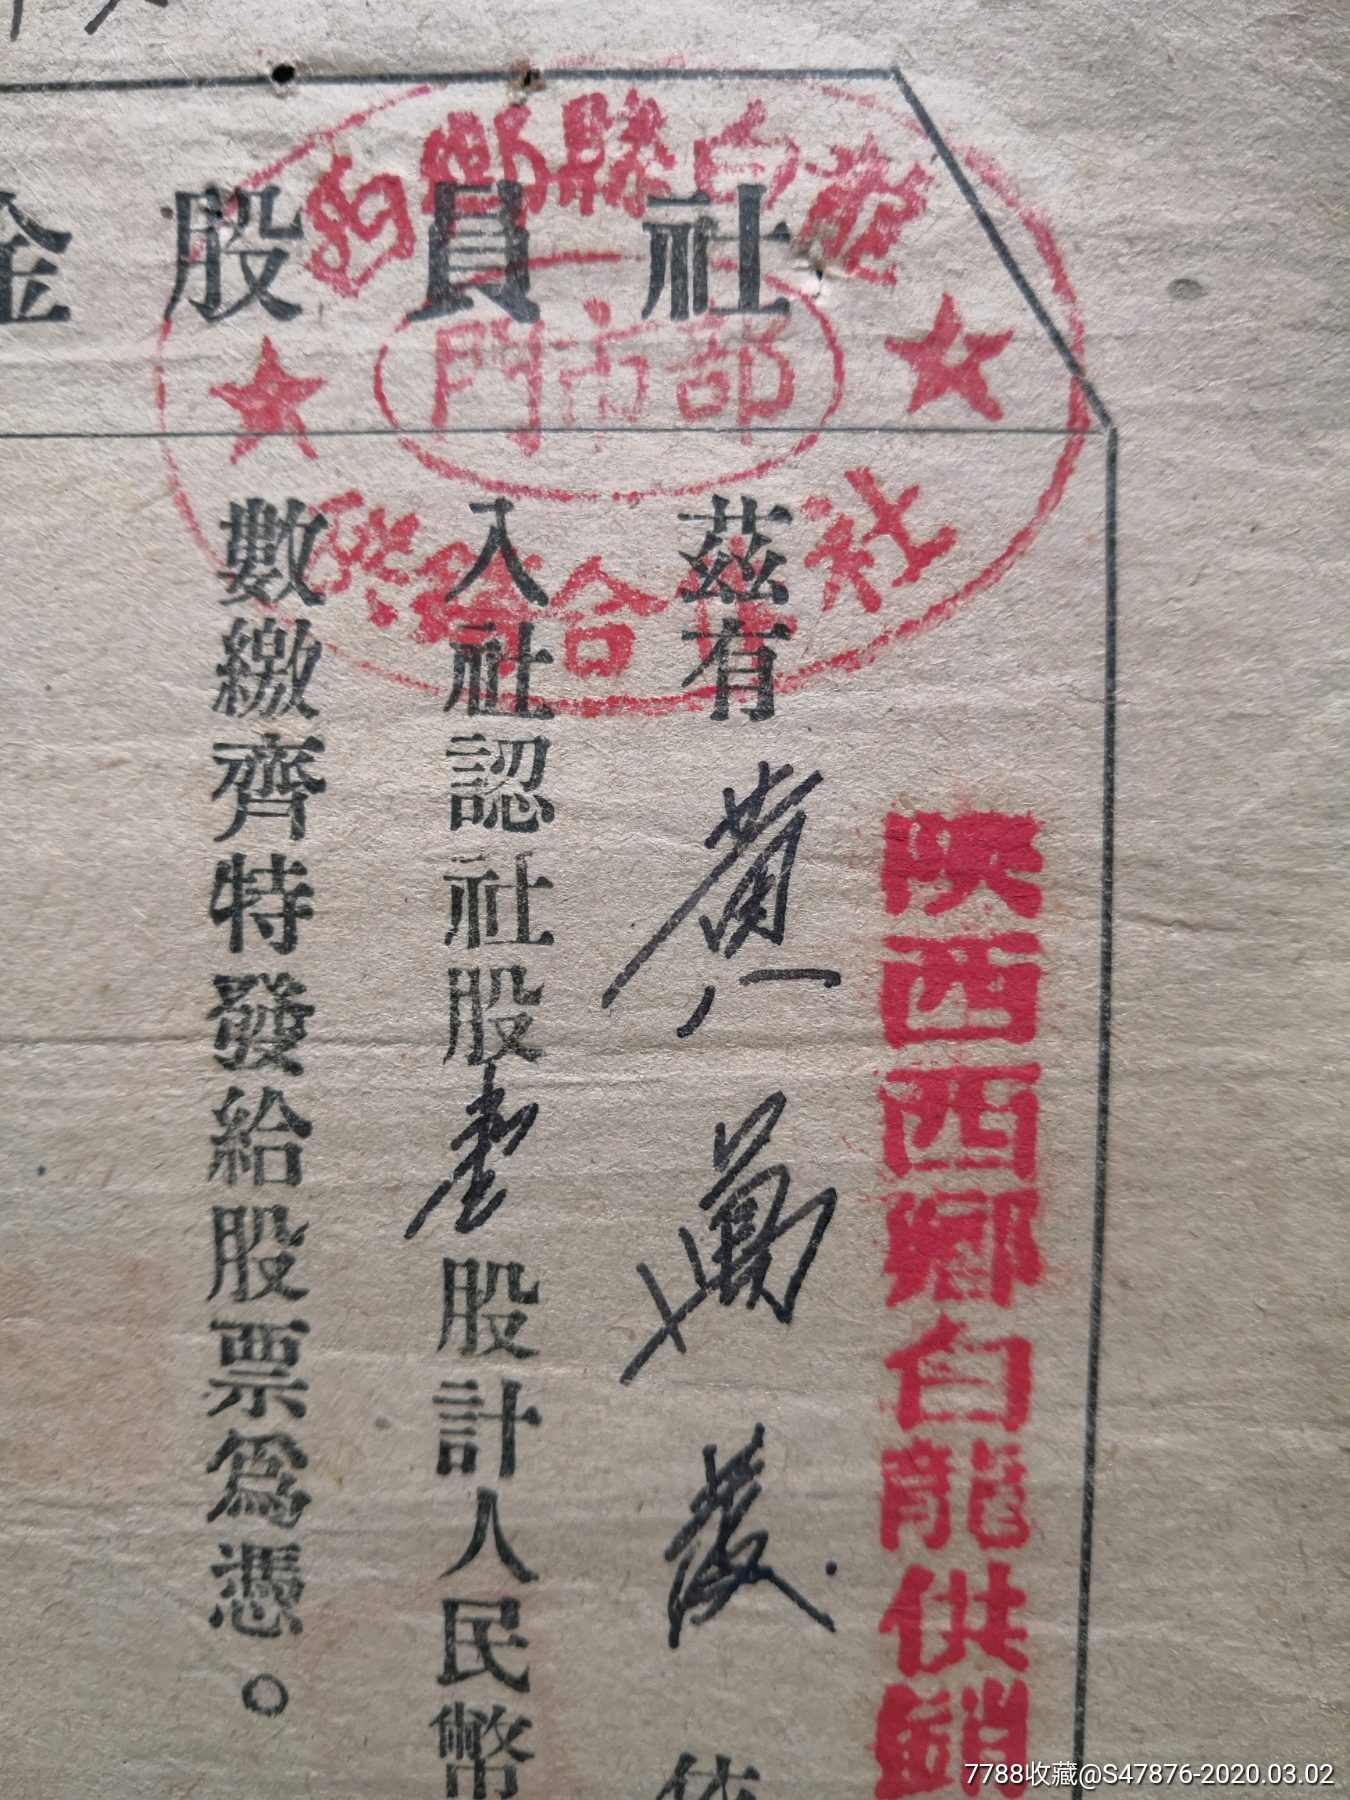 社員股金
西鄉縣白龍
門市部
供銷合作社
陝西西鄉白龍供銷
茲有黄萬發
入社認社股壹股計人民幣
數繳齊特發給股票爲憑。
7788收藏@S47876-2020.03.02